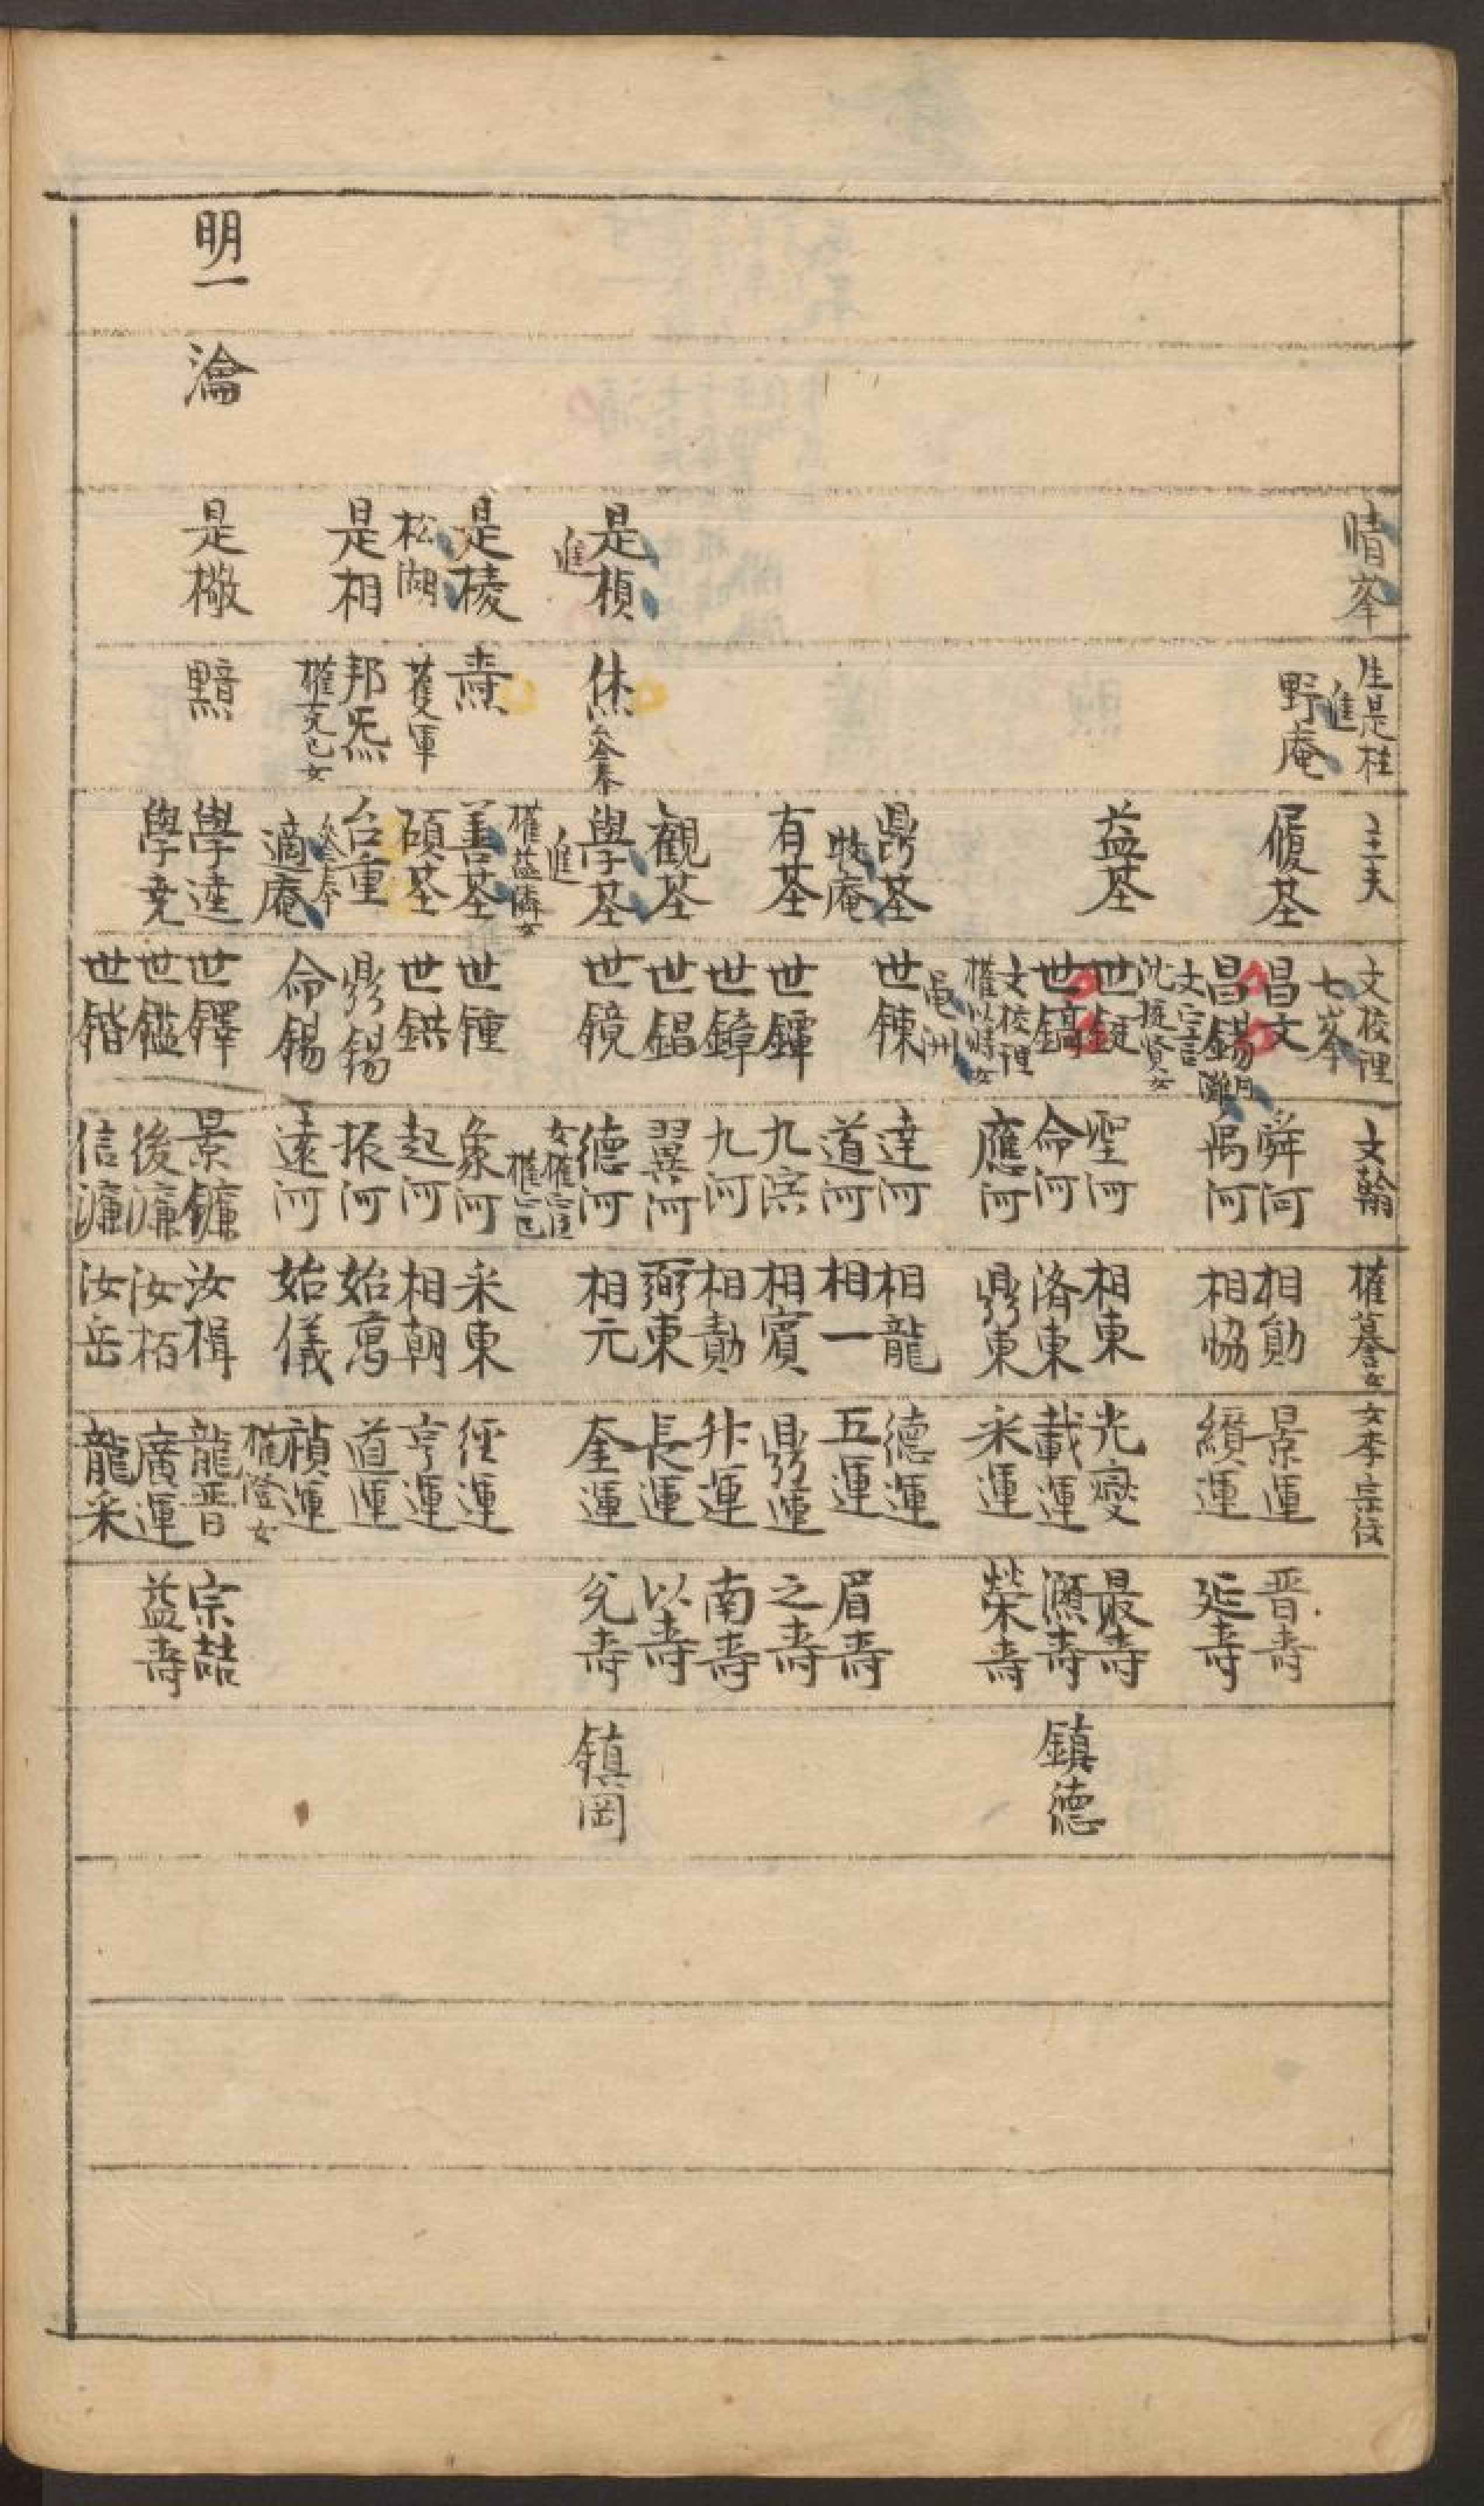 明一
瀹
晴峯
是楨
進
是棱
松湖
是相
是橵
生是桂
進
野庵
烋 參奉
燾
護軍
邦炁
權克己女
黯
主夫
履基
益基
鼎基
牧庵
有基
觀基
學基
進
權益隣女
善基
碩基
台重
參奉
適庵
學逵
學堯
文校理
七峯
昌文
昌錫
月灘
文正言
沈挺賢女
世鍵
世鎬
文校理
權以時女
世鍊
世鐔
世鏱
世錩
世鏡
世鍾
世鉷
鼎錫
命錫
世鐸
世鑑
世鍇
文翰
舜河
禹河
聖河
命河
應河
達河
道河
九浤
九河
翼河
德河
女權宦
象河
起河
振河
遠河
景鐮
後濂
信濂
權謩女
相勛
相協
相東
洛東
鼎東
相龍
相一
相賓
相勣
弼東
相元
采東
相朝
始萬
始儀
汝楫
汝栢
汝岳
女李宗伩
景運
纘運
光燮
載運
采運
德運
五運
鼎運
升運
長運
奎運
徑運
亨運
道運
禎運
權澄女
龍晋
廣運
龍采
晋壽
延壽
最壽
灝壽
榮壽
眉壽
之壽
南壽
以壽
兊壽
宗喆
益壽
鎮德
鎮岡